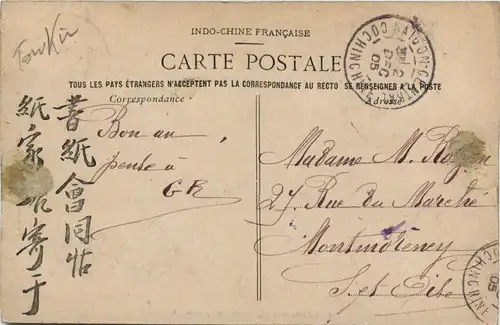 Tonkin
INDO-CHINE FRANÇAISE
CARTE POSTALE
TOUS LES PAYS ÉTRANGERS N'ACCEPTENT PAS LA CORRESPONDANCE AU RECTO SE RENSEIGNER A LA POSTE
Correspondance
Adresse
SAIGON-CENTRAL
2
DEC
05
COCHINCHINE
Bon an
pense à
GR
書紙會同帖
紙家 寄于
Madame M.
27 Rue du Marché
Montmorency
S. et Oise
COCHINCHINE
05